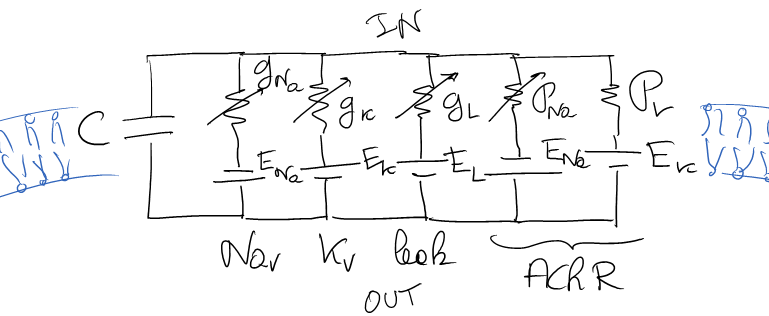 IN
C gNa gK gL PNa PK
ENa EK EL ENa EK
Nav Kv leak AChR
OUT